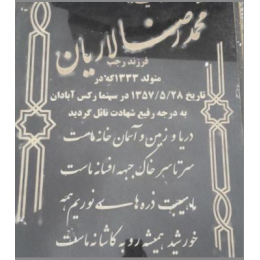 محمدرضا سالاریان
فرزند رجب
متولد ۱۳۳۳که در
تاریخ ۱۳۵۷/۵/۲۸ در سینما رکس آبادان
به درجه رفیع شهادت نائل گردید
دریا و زمین و آسمان خانه ماست
سرتاسر خاک جبهه افسانه ماست
ماهیچیم ذره‌های نوریم همه
خورشید همیشه رو به کاشانه ماست